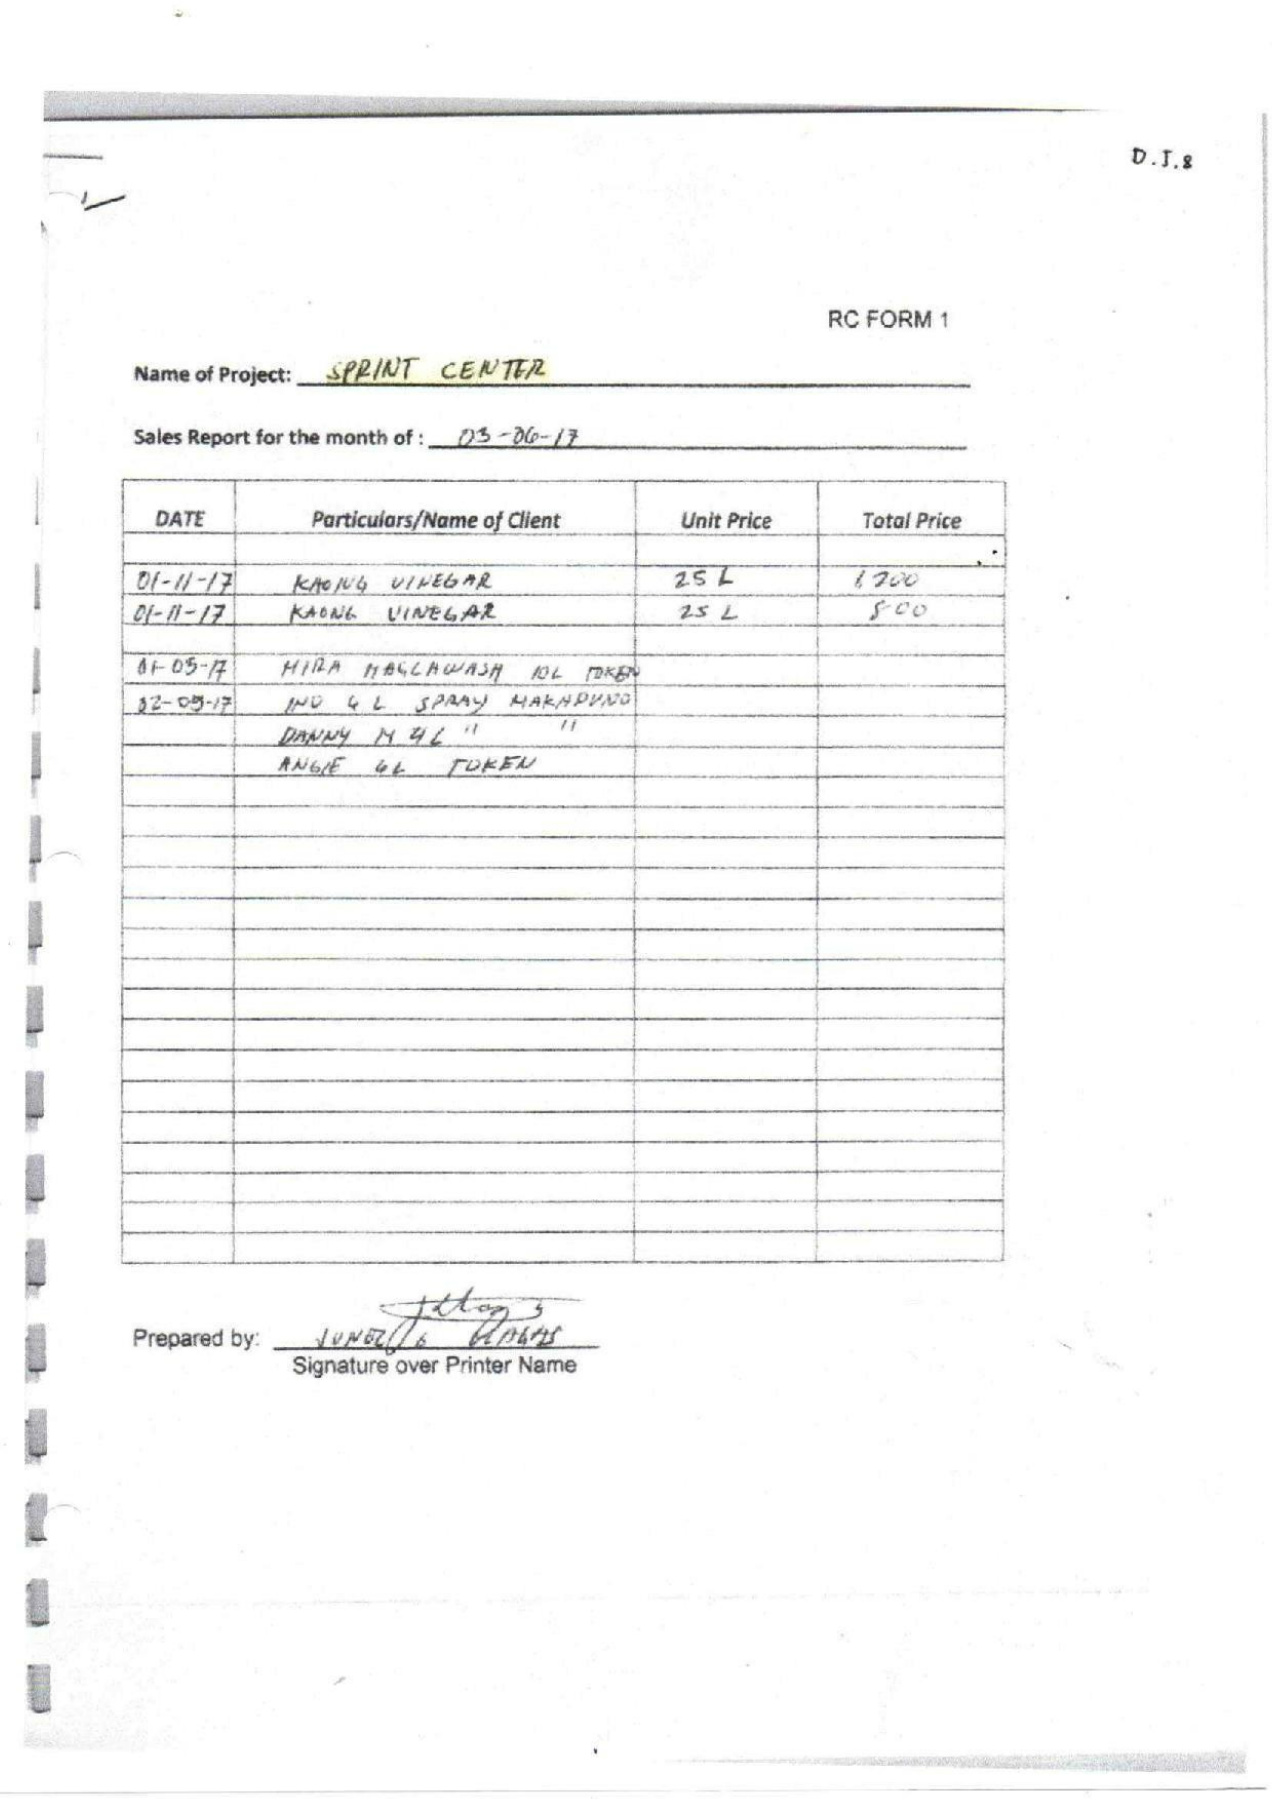 D.I.8
RC FORM 1
Name of Project: SPRINT CENTER
Sales Report for the month of : 03-06-17
DATE Particulars/Name of Client Unit Price Total Price
01-11-17 KAONG VINEGAR 25 L 1200
01-11-17 KAONG VINEGAR 25 L 800
01-05-17 MIRA MAGLAWASH 10L TOKEN
02-09-17 INO 4 L SPRAY MAKAPUNO
DANNY M 4L " "
ANGIE 4L TOKEN
Prepared by: JUNEL
Signature over Printer Name